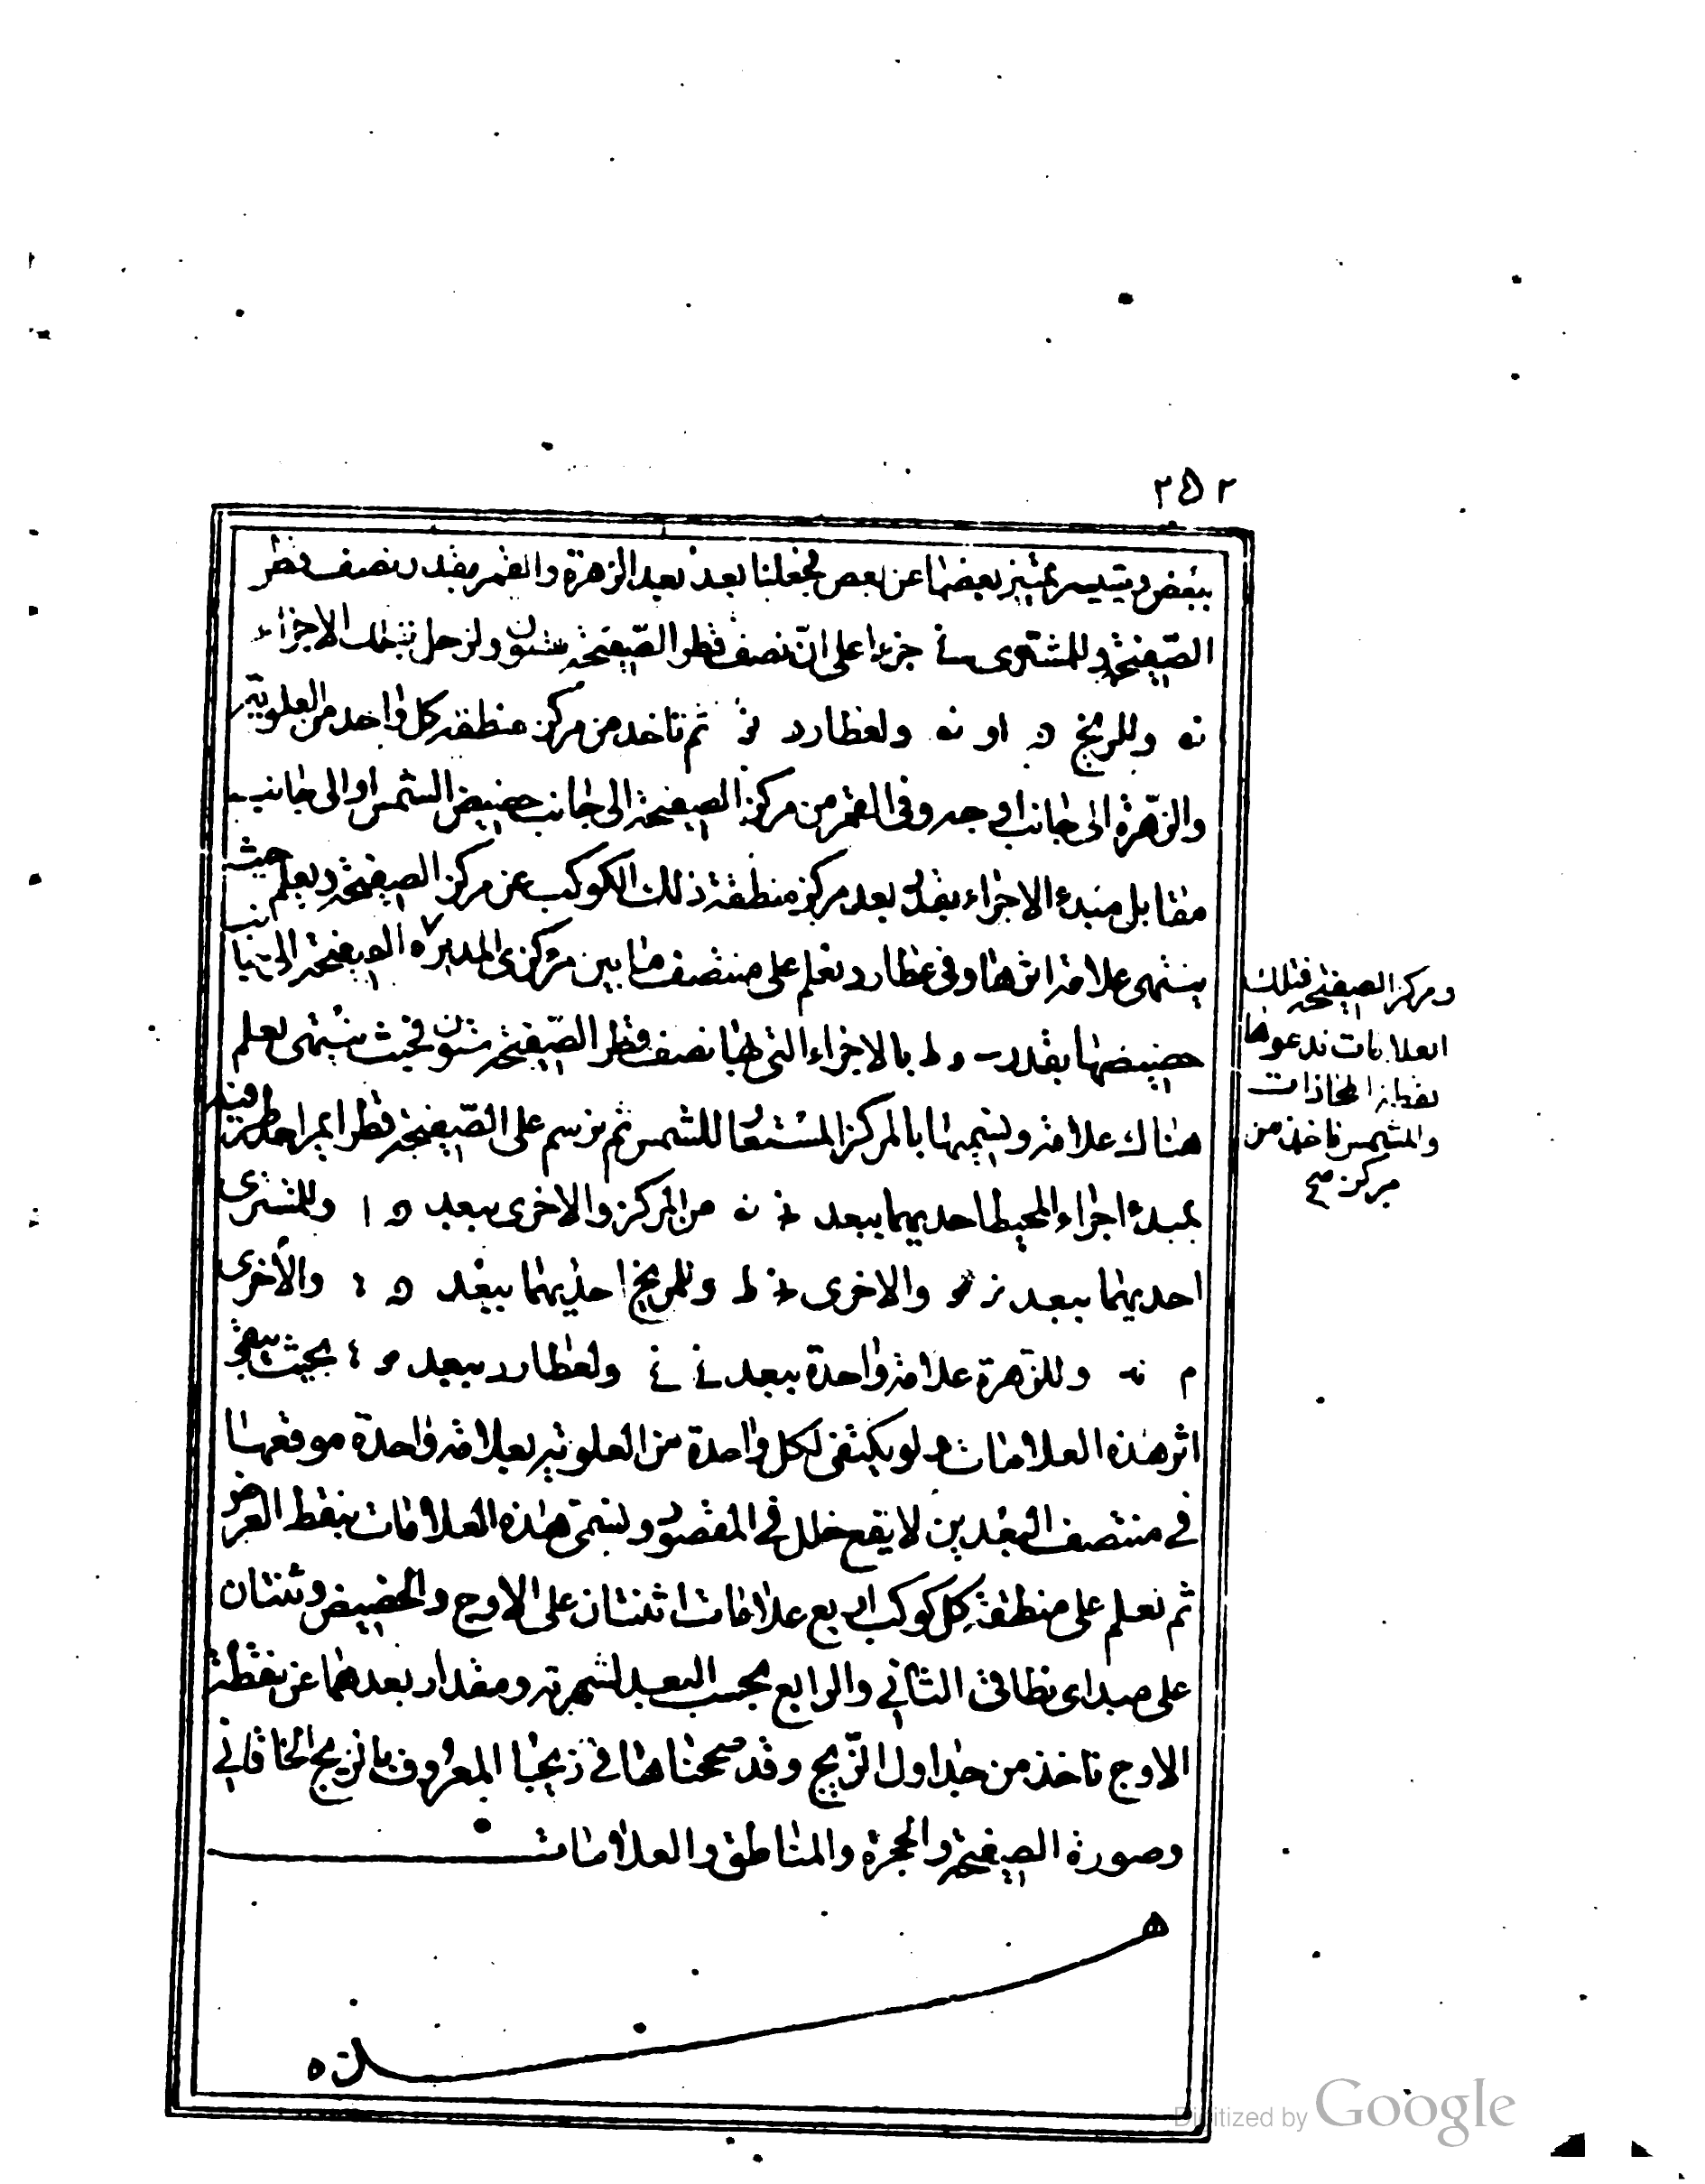 ٢٥٢
ببعض ويتيسر تمييز بعضها عن بعض فجعلنا بعد بعد الزهرة والقمر مقدر نصف قطر
الصفيحة وللمشترى جزءا على ان نصف قطر الصفيحة ستون ولزحل بتلك الاجزاء
نه وللمريخ ن او نه ولعطارد ثم ناخذ من مركز منطقة كل واحد من العلوية
والزهرة الى جانب اوجه وفى القمر من مركز الصفيحة الى جانب حضيض الشمس او الى جانب
مقابل مبدء الاجزاء بقدر بعد مركز منطقة ذلك الكوكب عن مركز الصفيحة ونعلم حيث
ينتهى علامة اثرها وفى عطارد نعلم على منتصف ما بين مركزى المديرة الصفيحة الى جانب
حضيضها بقدر بالاجزاء التى بها نصف قطر الصفيحة ستون فحيث ينتهى نعلم
هناك علامة ونسميها بالمركز المستعا للشمس ثم نرسم على الصفيحة قطرا يمر احد طرفيه
بمبدء اجزاء المحيط احديهما ببعد من المركز والاخرى ببعد ن ا وللمشترى
احديهما ببعد والاخرى وللمريخ احديهما ببعد ن والاخرى
م نه وللزهرة علامة واحدة ببعد ولعطارد ببعد بحيث يبقى
اثر هذه العلامات ولو يكتفى لكل واحدة من العلوية بعلامة واحدة موقعها
في منتصف البعدين لا يقع خلل في المقصود ونسمى هذه العلامات بنقط العرض
ثم نعلم على منطقة كل كوكب اربع علامات اثنتان على الاوج والحضيض وثنتان
على مبداى نطاقى الثانى والرابع بحسب البعد لشهرته ومقدار بعدهما عن نقطة
الاوج ناخذ من جداول الزيج وقد صححناها في زيجنا المعروف بالزيج الخاقاني
وصورة الصفيحة والحجرة والمناطق والعلامات
هذه
ومركز الصفيحة فتلك
العلامات ندعوها
نقطة المحاذات
والشمس فاخذ من
مركز صح
Digitized by Google